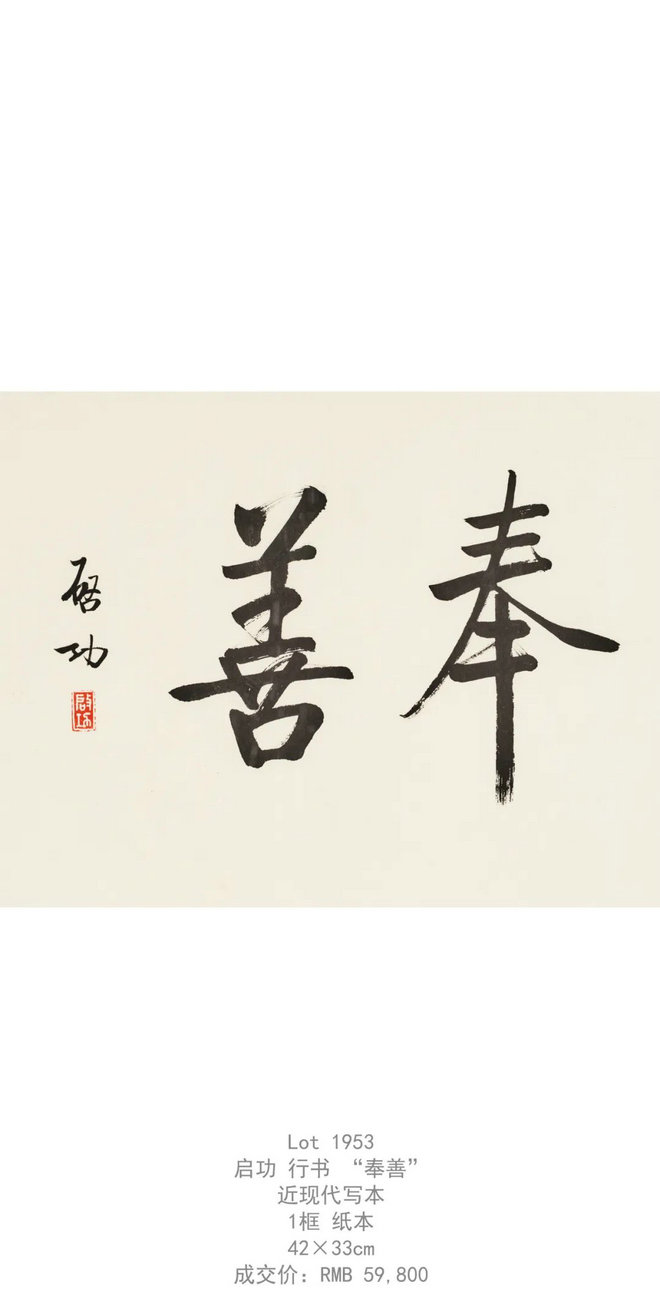 奉善
啓功
啓功
Lot 1953
启功 行书 “奉善”
近现代写本
1框 纸本
42×33cm
成交价：RMB 59,800